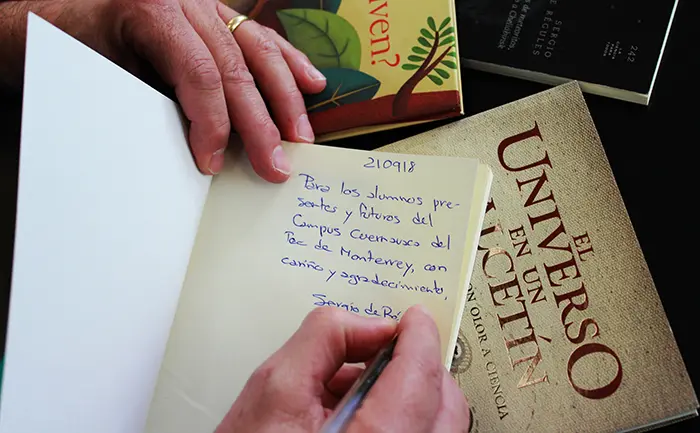 ven?
SERGIO
DE RÉGULES
242
210918
Para los alumnos pre-
sentes y futuros del
Campus Cuernavaca del
Tec de Monterrey, con
cariño y agradecimiento,
Sergio de
EL
UNIVERSO
EN UN
CALCETÍN
OLOR A CIENCIA